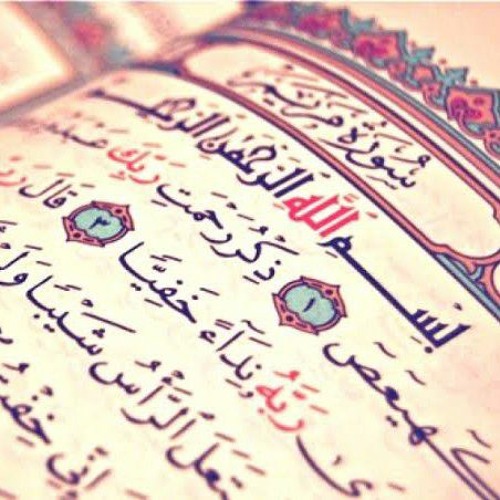 سُورَةُ مَرْيَمَ
بِسْمِ اللَّهِ الرَّحْمَٰنِ الرَّحِيمِ
كٓهيعٓصٓ ١ ذِكْرُ رَحْمَتِ رَبِّكَ عَبْدَهُ
ىٰ رَبَّهُ نِدَآءً خَفِيًّا ٣ قَالَ رَبِّ
تَعَلَ الرَّأْسُ شَيْبًا وَلَمْ
إِنِّي خِفْتُ